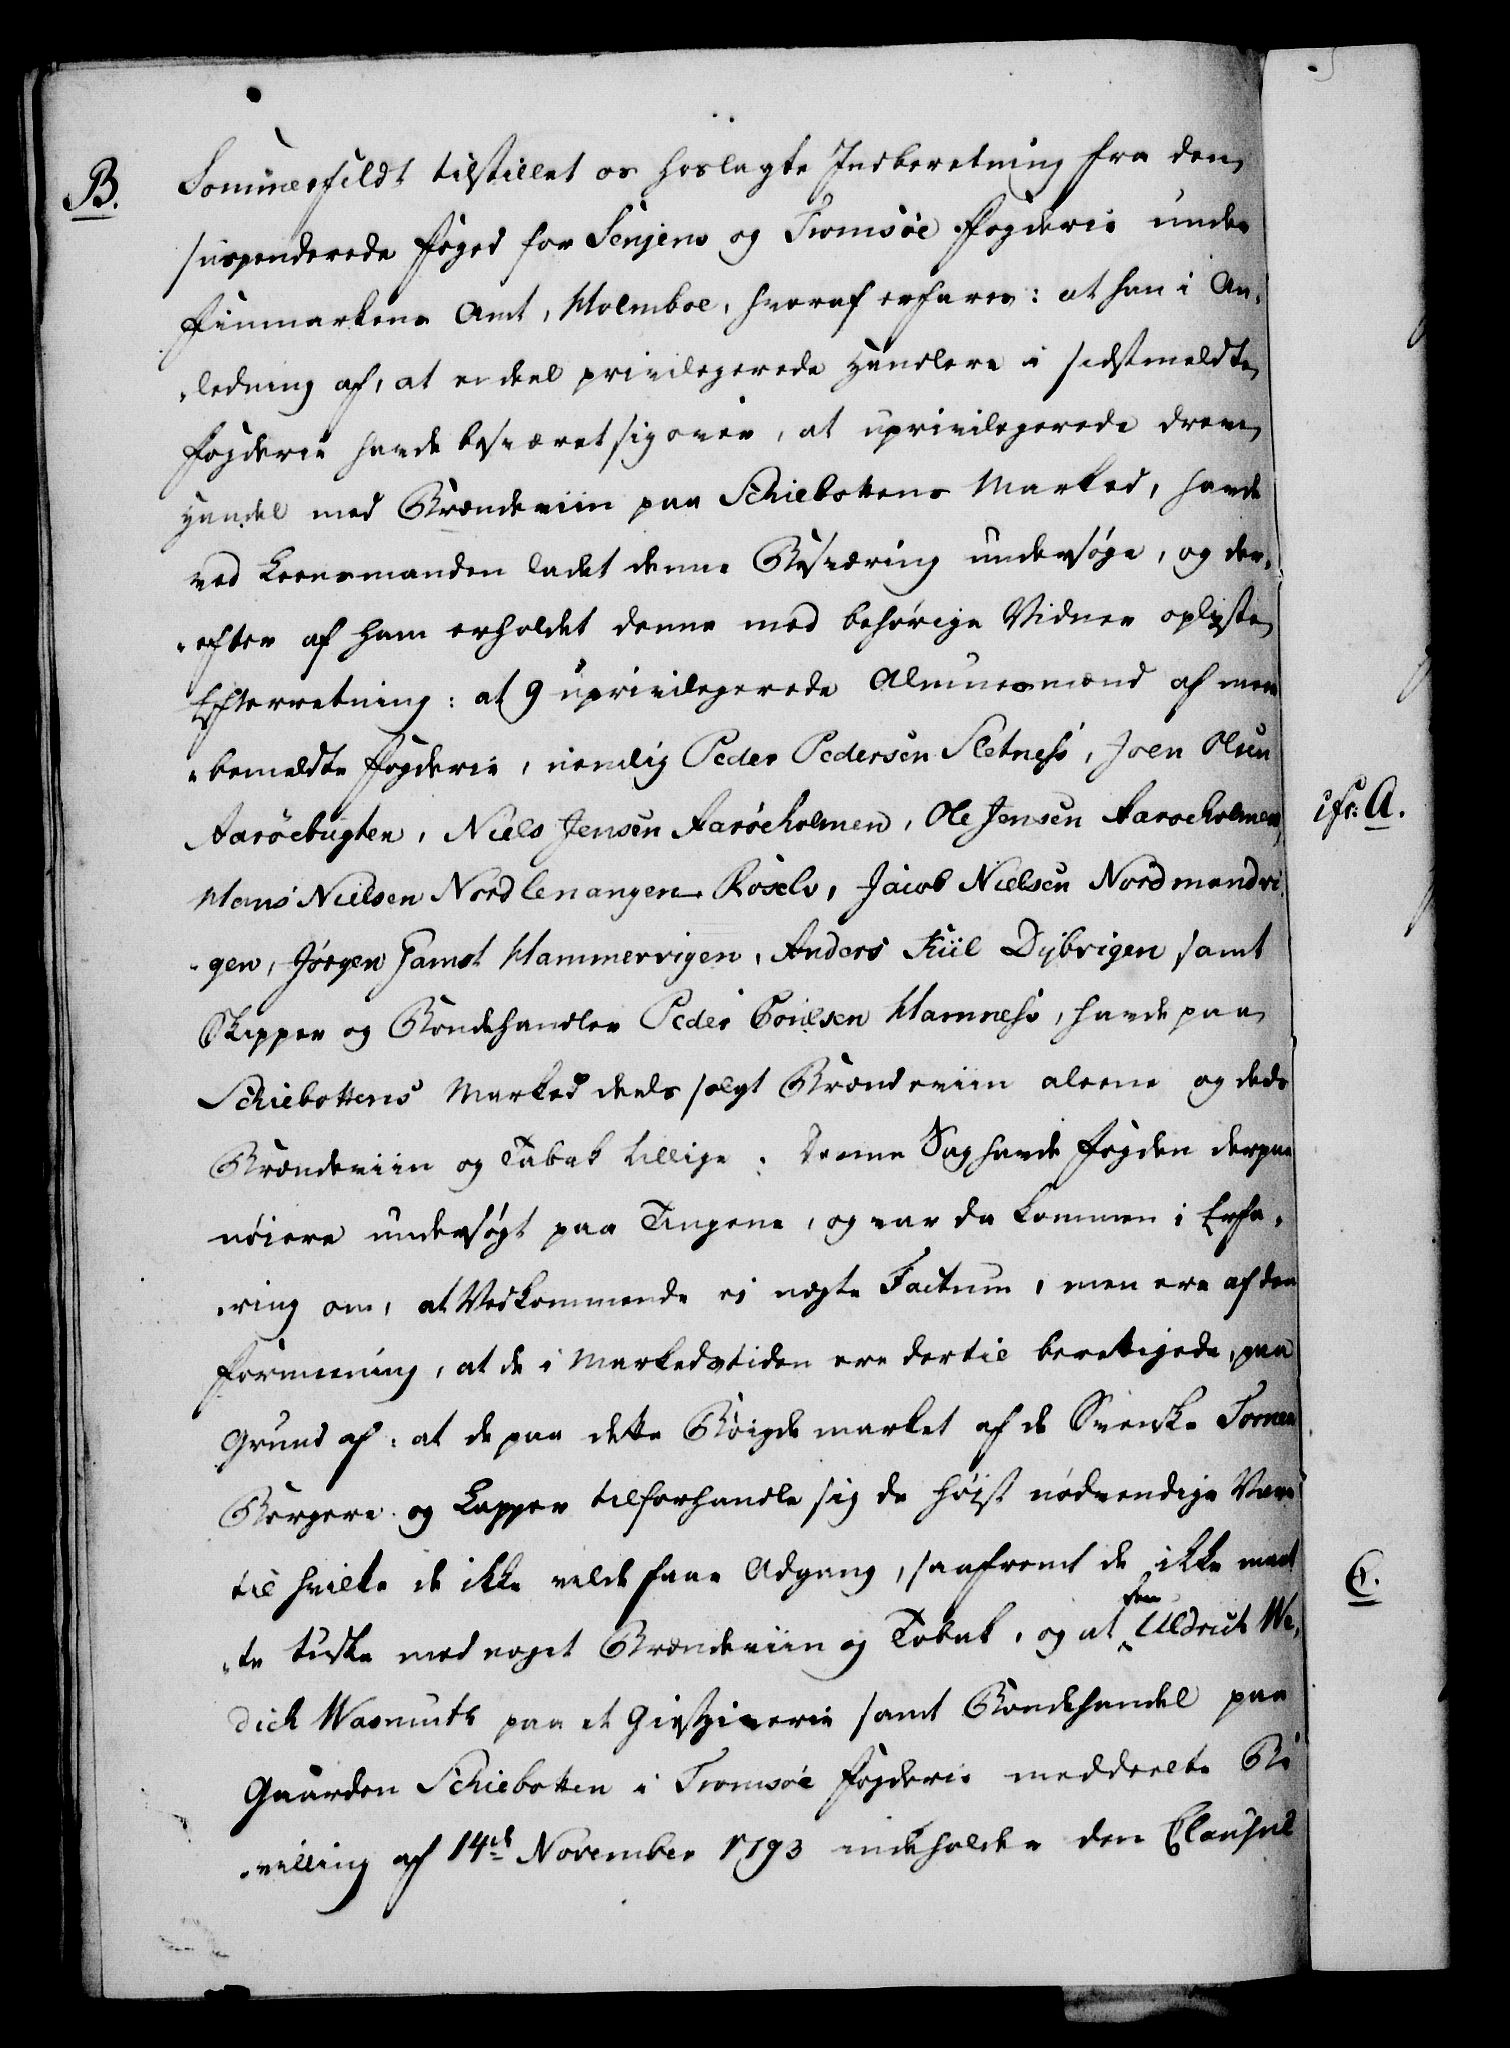 B.
Sommerfeldt tilstillet os hoslagte Indberetning fra den
suspenderede Foged for Senjens og Tromsöe Fogderie under
Finmarkens Amt, Holmboe, hvoraf erfares: at han i An-
-ledning af, at en deel privilegerede Handlere i sidstmeldte
Fogderie havde besværet sig over, at uprivilegerede drev
Handel med Brændeviin paa Schiebottens Marked, havde
ved Leensmanden ladet denne Besværing undersøge, og der-
-efter af ham erholdet denne med behørige Vidner oplyste
Efterretning: at 9 uprivilegerede Almuesmænd af meer
-bemeldte Fogderie, nemlig Peder Pedersen Sletness, Joen Olsen
Aaröebugten, Niels Jensen Aaröeholmen, Ole Jensen Aaroeholmen,
Hans Nielsen Nordlenangen Röselv, Jacob Nielsen Nordmandvi-
-gen, Jörgen Gamst Hammervigen, Anders Kiil Dybvigen samt
Skipper og Bondehandler Peder Povelsen Hamness, havde paa
Schiebottens Marked deels solgt Brændeviin aleene og deels
Brændeviin og Tabak tillige. Denne Sag havde Fogden derpaa
nöiere undersøgt paa Tingene, og var da kommen i Erfa-
-ring om, at Vedkommende ei nægte Factum, men ere af den
Formening, at de i Markedstiden ere dertil berettigede, paa
Grund af: at de paa dette Böigdemarket af de Svenske Torneå
Borgere og Lapper tilforhandle sig de höist nödvendige Vare
til hvilke de ikke vilde faae Adgang, saafremt de ikke maat
-te tuske med noget Brændeviin og Tobak, og at den Uldrich We-
dich Wasmuth paa et Giestgiverie samt Bondehandel paa
Gaarden Schiebotten i Tromsöe Fogderie meddeelte Be
-villing af 14de November 1793 indeholder den Clausul
cfr: A.
C.